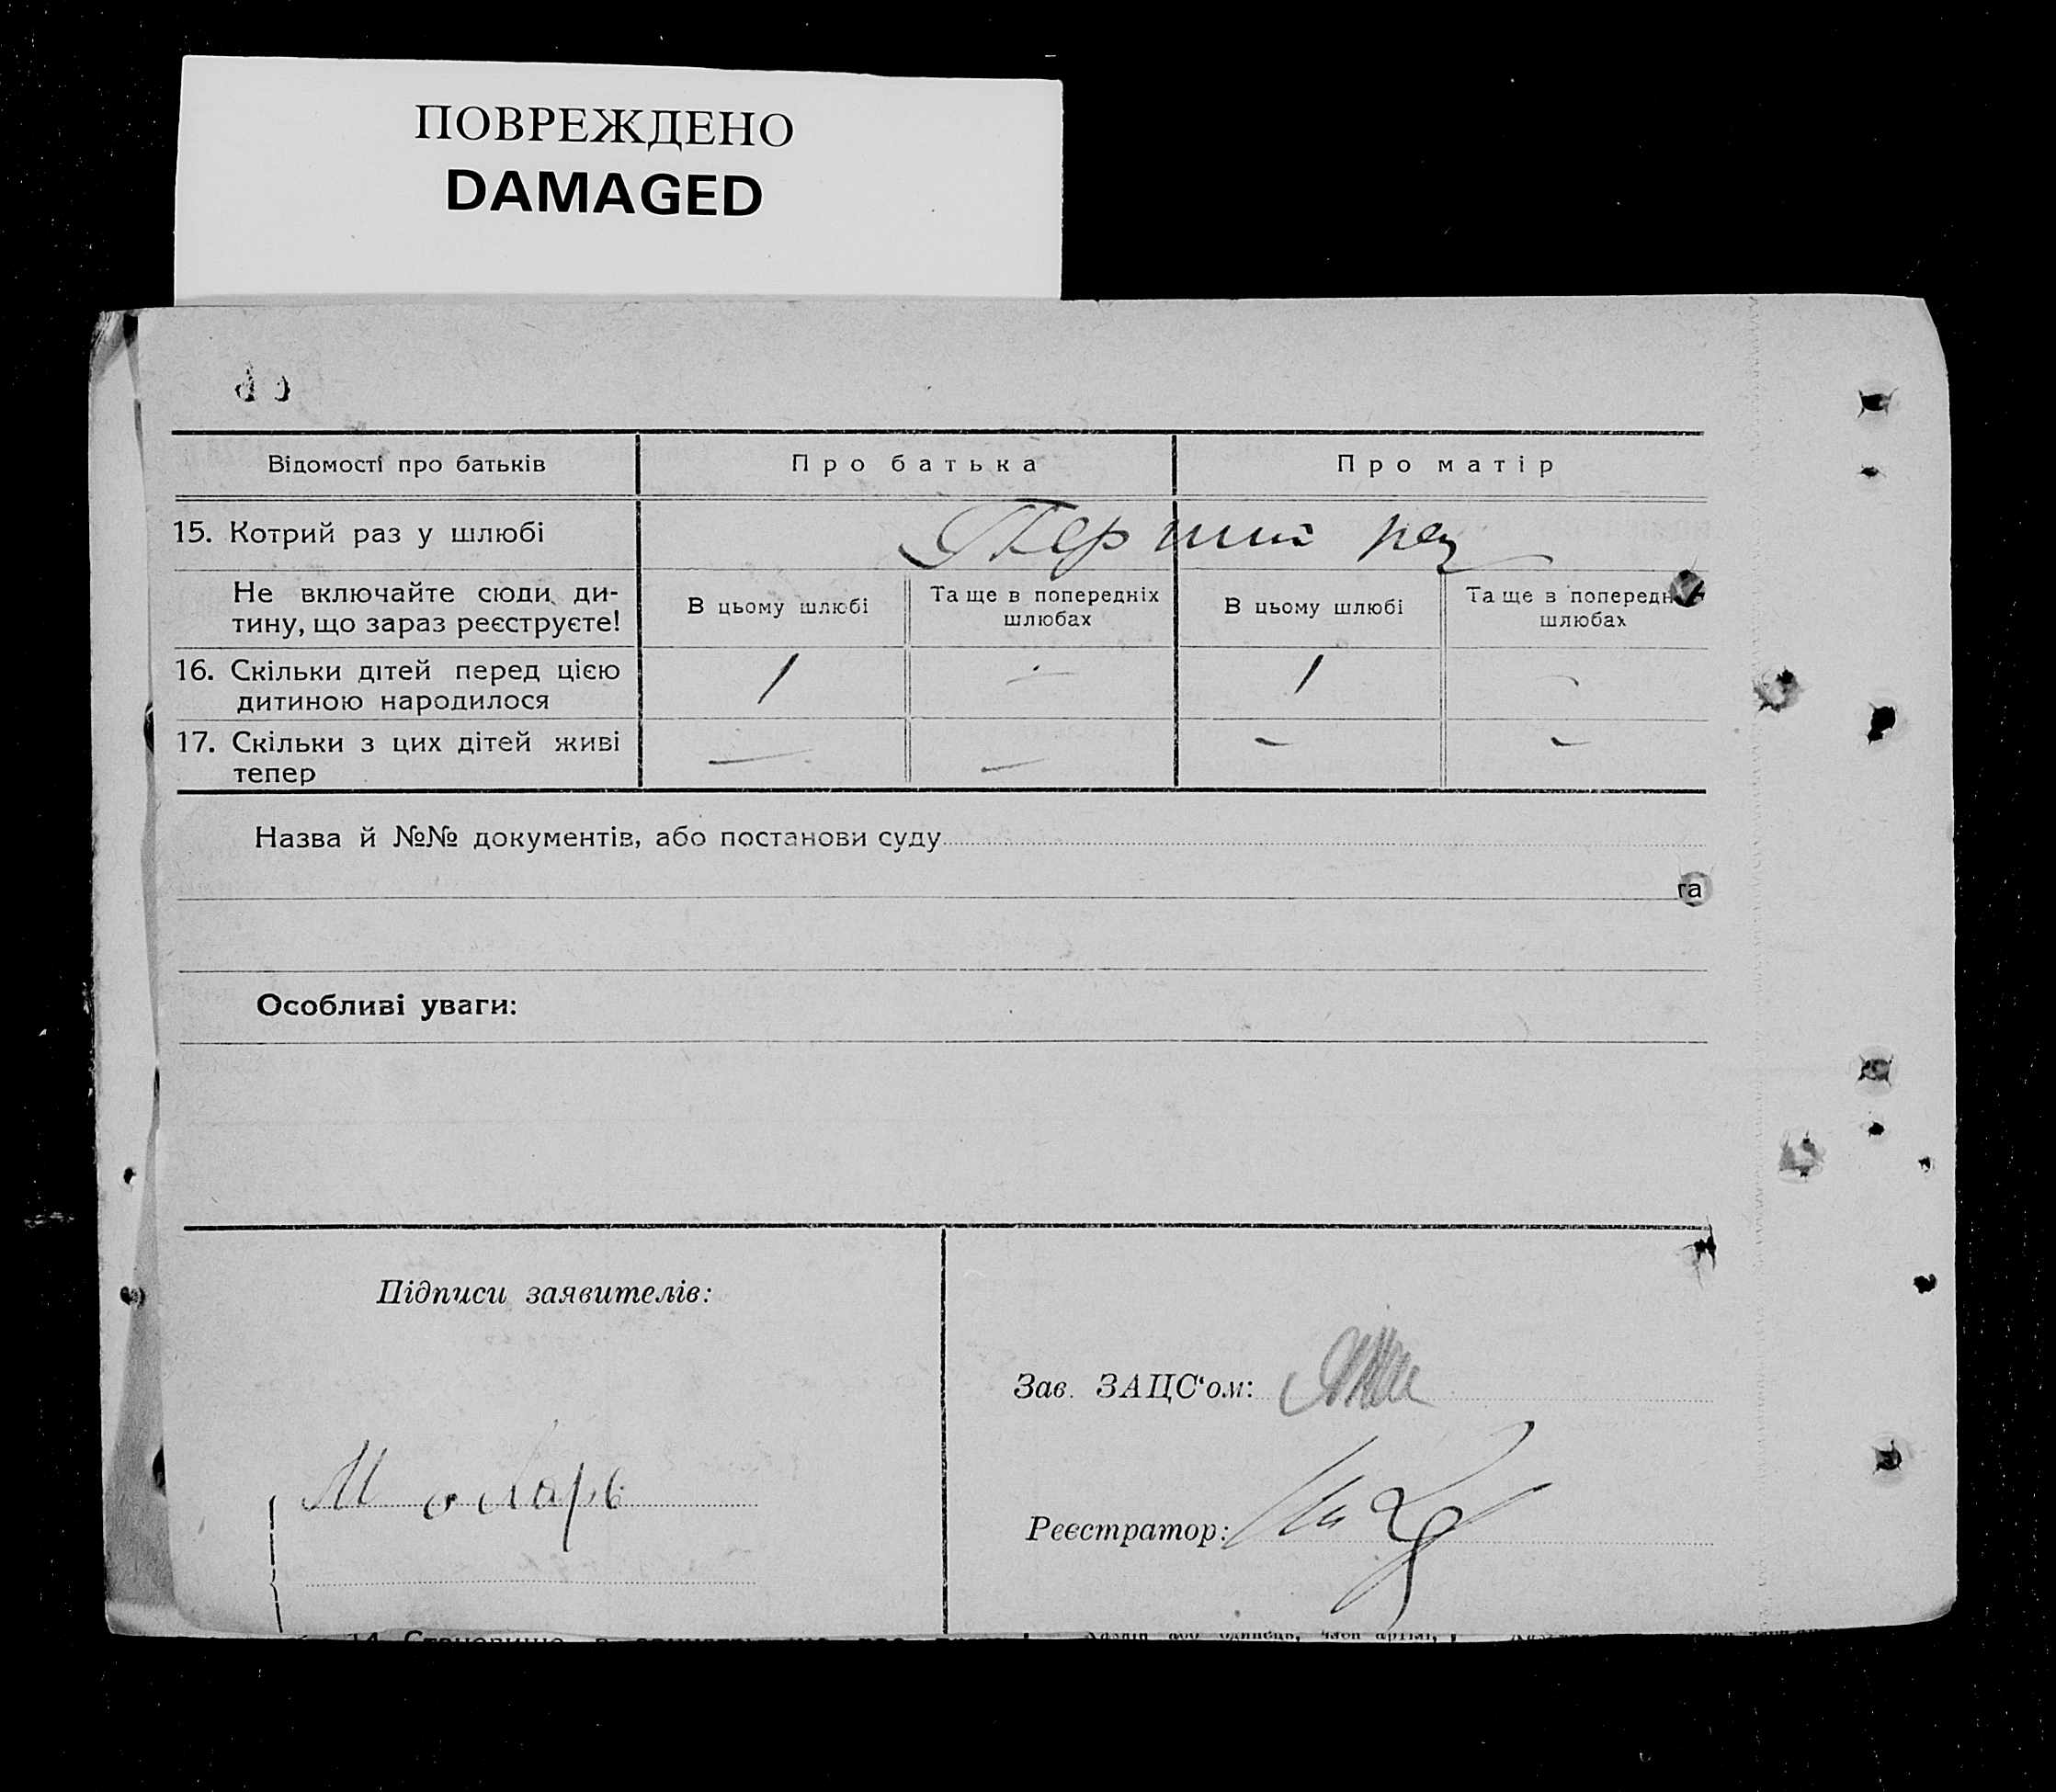 ПОВРЕЖДЕНО
DAMAGED
Відомості про батьків
Про батька
Про матір
15. Котрий раз у шлюбі
Перший раз
Не включайте сюди ди-
тину, що зараз реєструєте!
В цьому шлюбі
Та ще в попередніх
шлюбах
В цьому шлюбі
Та ще в попередн
шлюбах
16. Скільки дітей перед цією
дитиною народилося
1
-
1
-
17. Скільки з цих дітей живі
тепер
-
-
-
-
Назва й №№ документів, або постанови суду
га
Особливі уваги:
Підписи заявителів:
Зав. ЗАЦС'ом:
Реєстратор: